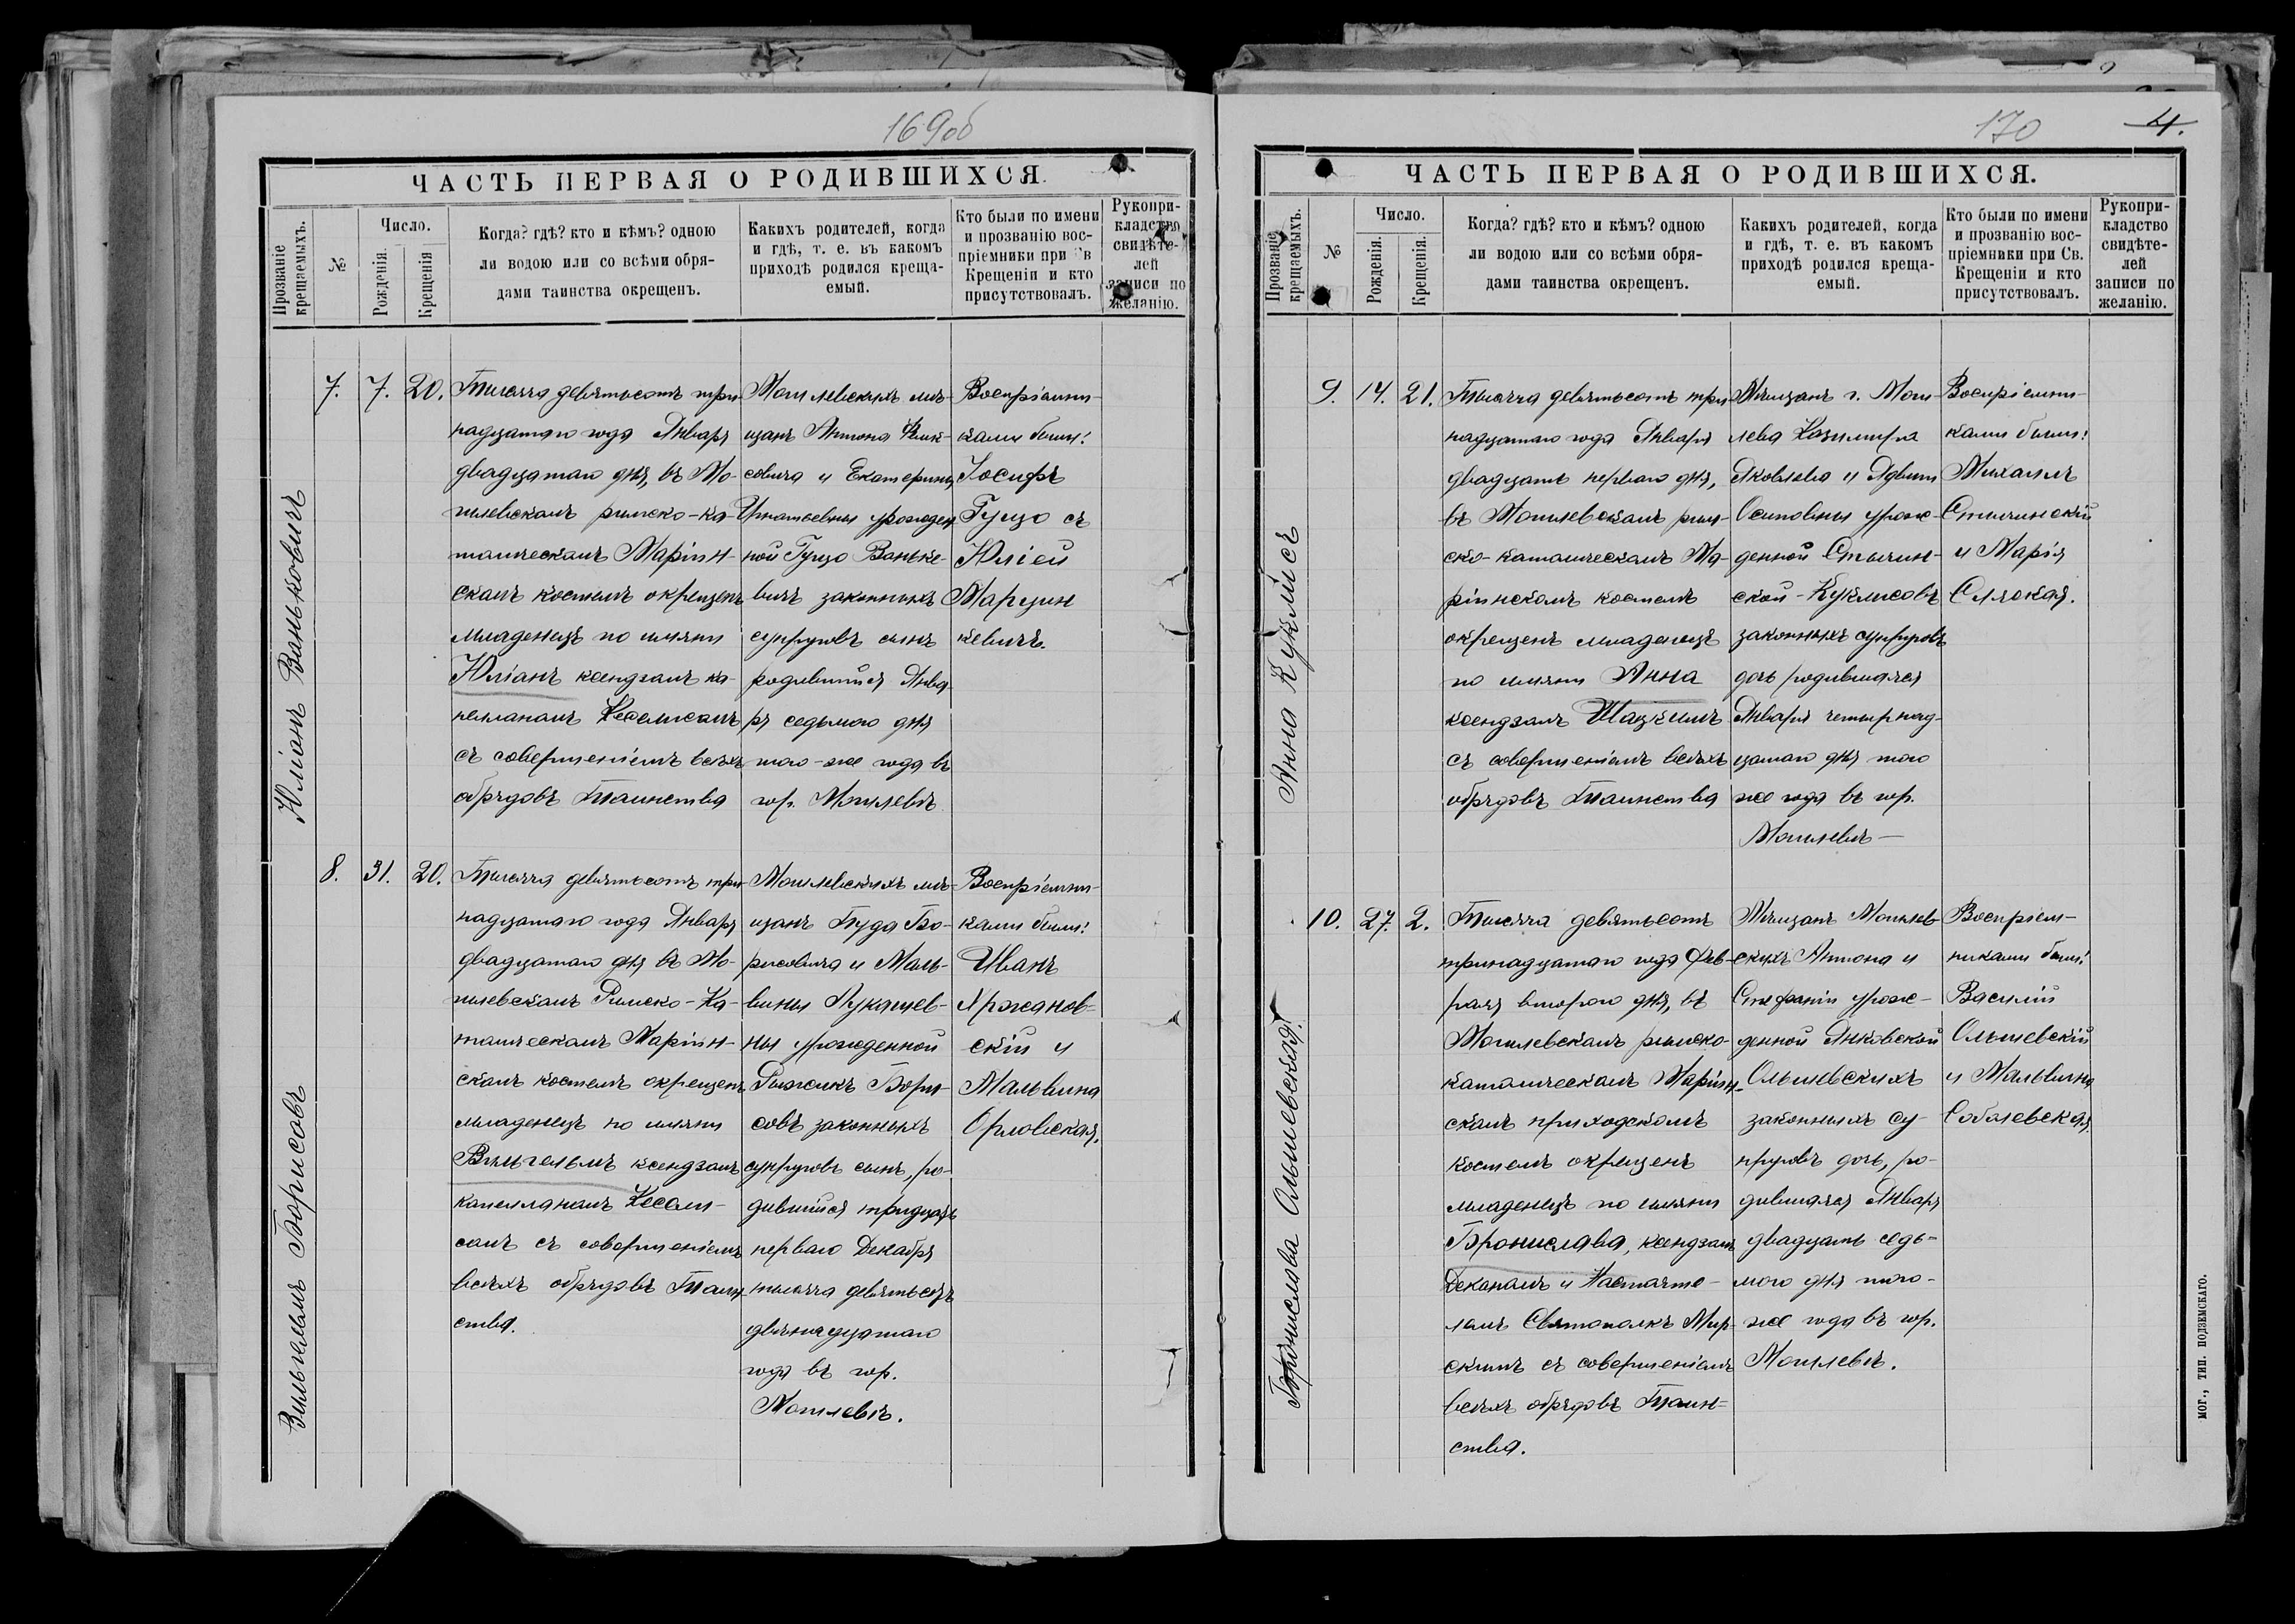 169об
ЧАСТЬ ПЕРВАЯ О РОДИВШИХСЯ.
Прозваніе крещаемыхъ.
№
Число.
Рожденія.
Крещенія
Когда? гдѣ? кто и кѣмъ? одною
ли водою или со всѣми обря-
дами таинства окрещенъ.
Какихъ родителей, когда
и гдѣ, т. е. въ какомъ
приходѣ родился креща-
емый.
Кто были по имени
и прозванію вос-
пріемники при в
Крещеніи и кто
присутствовалъ.
Рукопри-
кладство
свидѣте-
лей
записи по
желанію.
Юліанъ Ваньковичъ
7.
7.
20.
Тысяча девятьсотъ три-
надцатаго года Января
двадцатаго дня, въ Мо-
гилевскомъ римско-ка-
толическомъ Маріин-
скомъ костелѣ окрещенъ
младенецъ по имяни
Юліанъ ксендзомъ ка-
пелланомъ
съ совершеніемъ всѣхъ
обрядовъ Таинства
Могилевскихъ мѣ-
щанъ Антона
совича и Екатерины
Игнатьевны урожден-
ной Гуцо Ваньке-
вичъ законныхъ
супруговъ сынъ
родившійся Янва-
ря седьмого дня
того-же года въ
гор. Могилевѣ
Воспріемни-
ками были:
Іосифъ
Гуцо съ
Юліей
Марцин
кевичъ.
Вильгельмъ Борисовъ
8.
31.
20.
Тысяча девятьсотъ три-
надцатаго года Января
двадцатаго дня въ Мо-
гилевскомъ Римско-Ка-
толическомъ Маріин-
скомъ костелѣ окрещенъ
младенецъ по имяни
Вильгельмъ ксендзомъ
капелланомъ
съ совершеніемъ
всѣхъ обрядовъ Таин-
ства.
Могилевскихъ мѣ-
щанъ Бо-
рисовича и Маль-
вины Лукашев-
ны урожденной
Рыжикъ Бори-
совъ законныхъ
супруговъ сынъ, ро-
дившійся тридцать
перваго Декабря
тысяча девятьсотъ
двѣнадцатаго
года въ гор.
Могилевѣ.
Воспріемни-
ками были:
Иванъ
Аржанов-
скій и
Мальвина
Орловская.
170
4.
ЧАСТЬ ПЕРВАЯ О РОДИВШИХСЯ.
Прозваніе крещаемыхъ.
№
Число.
Рожденія.
Крещенія.
Когда? гдѣ? кто и кѣмъ? одною
ли водою или со всѣми обря-
дами таинства окрещенъ.
Какихъ родителей, когда
и гдѣ, т. е. въ какомъ
приходѣ родился креща-
емый.
Кто были по имени
и прозванію вос-
пріемники при Св.
Крещеніи и кто
присутствовалъ.
Рукопри-
кладство
свидѣте-
лей
записи по
желанію.
Анна Куклисъ
9.
14.
21.
Тысяча девятьсотъ три-
надцатаго года Января
двадцать перваго дня,
въ Могилевскомъ рим-
ско-католическомъ Ма-
ріинскомъ костелѣ
окрещенъ младенецъ
по имяни Анна
ксендзомъ Шацкимъ
съ совершеніемъ всѣхъ
обрядовъ Таинства
Мѣщанъ г. Моги-
лева Казимира
Яковлева и Ядвиги
Осиповны урож-
денной Стычин-
ской-Куклисовъ
законныхъ супруговъ
дочь родившаяся
Января четырнад-
цатаго дня того
же года въ гор.
Могилевѣ-
Воспріемни-
ками были:
Михаилъ
Стычинскій
и Марія
Слуцкая.
Бронислава Ольшевская.
10.
27.
2.
Тысяча девятьсотъ
тринадцатаго года Фев-
раля второго дня, въ
Могилевскомъ римско-
католическомъ Маріин-
скомъ приходскомъ
костелѣ окрещенъ
младенецъ по имяни
Бронислава, ксендзомъ
Деканомъ и Настояте-
лемъ Святополкъ Мир-
скимъ съ совершеніемъ
всѣхъ обрядовъ Таин-
ства.
Мѣщанъ Могилев-
скихъ Антона и
Стефаніи урож-
денной Янковской
Ольшевскихъ
законныхъ су-
пруговъ дочь, ро-
дившаяся Января
двадцать седь-
мого дня того-
же года въ гор.
Могилевѣ.
Воспріем-
никами были:
Василій
Ольшевскій
и Мальвина
Соболевская.
МОГ., ТИП. ПОДЗЕМСКАГО.